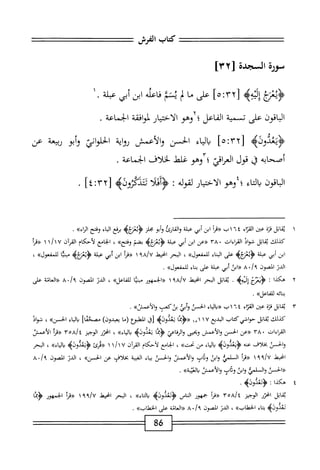 كتاب الفرش
سورة السجدة [٣٢]
﴿يُعْرَجُ إِلَيْهِ﴾ [٣٢:٥] على ما لم يُسَمَّ فاعلُه ابن أبي عبلة .١
الباقون على تسمية الفاعل ؛٢ وهو الاختيار لموافقة الجماعة .
﴿يَعُدُّونَ﴾ [٣٢:٥] بالياء الحسن والأعمش رواية الحلوانيّ وأبو ربيعة عن
أصحابه في قول العراقيّ ؛٣ وهو غلط لخلاف الجماعة .
الباقون بالتاء ؛٤ وهو الاختيار لقوله : ﴿أَفَلَا تَتَذَكَّرُونَ﴾ [٣٢:٤] .
١ يُقابل قرّة عين القرّاء ١٦٤ب «قرأ ابن أبي عبلة والقارئ وأبو مجلز ﴿يُعْرَجُ﴾ برفع الياء وفتح الراء» .
كذلك يُقابل شواذّ القراءات ٣٨٠ «عن ابن أبي عبلة ﴿يُعْرَجُ﴾ بضمّ وفتح» ، الجامع لأحكام القرآن ١١/١٧ «قرأ
ابن أبي عبلة ﴿يُعْرَجُ﴾ على البناء للمفعول» ، البحر المحيط ١٩٨/٧ «قرأ ابن أبي عبلة ﴿يُعْرَجُ﴾ مبنيًّا للمفعول» ،
الدرّ المصون ٨٠/٩ «ابنُ أبي عبلة على بناء للمفعول» .
٢ هكذا : ﴿يَعْرُجُ إِلَيْهِ﴾ . يُقابل البحر المحيط ١٩٨/٧ «الجمهور مبنيًّا للفاعل» ، الدرّ المصون ٨٠/٩ «العامّة على
بنائه للفاعل» .
٣ يُقابل قرّة عين القرّاء ١٦٤ب «بالياء الحسنُ وأُبيُّ بنُ كعب والأعمشُ» .
كذلك يُقابل حواشي كتاب البديع ١١٧، «﴿مِمَّا يَعُدُّونَ﴾ [في المطبوع (ما يعبدون) مصحّفا] بالياء الحسن» ، شواذّ
القراءات ٣٨٠ «عن الحسن والأعمش ويحيى والرفاعيّ ﴿مِمَّا يَعُدُّونَ﴾ بالياء» ، المحرّر الوجيز ٣٥٨/٤ «قرأ الأعمشُ
والحسنُ بخلاف عنه ﴿يَعُدُّونَ﴾ بالياء من تحت» ، الجامع لأحكام القرآن ١١/١٧ «قُرئ ﴿يَعُدُّونَ﴾ بالياء» ، البحر
المحيط ١٩٩/٧ «قرأ السلميُّ وابنُ وثّاب والأعمشُ والحسنُ بياء الغيبة بخلاف عن الحسن» ، الدرّ المصون ٨٠/٩
«الحسنُ والسلميُّ وابنُ وثّاب والأعمشُ بالغيبة» .
٤ هكذا : ﴿تَعُدُّونَ﴾ .
يُقابل المحرّر الوجيز ٣٥٨/٤ «قرأ جمهور الناس ﴿تَعُدُّونَ﴾ بالتاء» ، البحر المحيط ١٩٩/٧ «قرأ الجمهور ﴿مِمَّا
تَعُدُّونَ﴾ بتاء الخطاب» ، الدرّ المصون ٨٠/٩ «العامّة على الخطاب» .
86